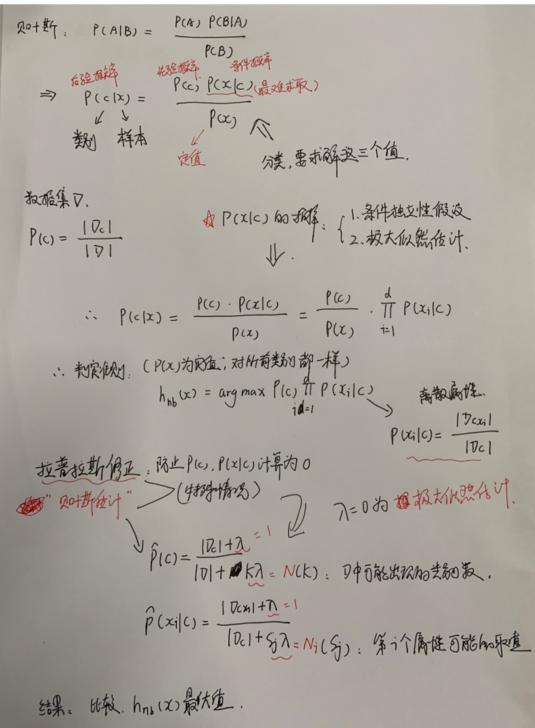 贝叶斯: P(A|B) = P(A) P(B|A) / P(B)
后验概率 先验概率 条件概率
⇒ P(c|x) = P(c) P(x|c) / P(x) (最难求取)
类别 样本 定值 分类, 要求解这三个值.
数据集D.
P(c) = |Dc| / |D|
☆ P(x|c) 的求解: { 1.条件独立性假设
2.极大似然估计.
⇓
∴ P(c|x) = P(c)·P(x|c) / P(x) = P(c) / P(x) · ∏ i=1 d P(xi|c)
∴ 判定准则: (P(x)为定值; 对所有类别都一样)
hnb(x) = arg max P(c) ∏ i=1 d P(xi|c)
离散属性.
P(xi|c) = |Dcxi| / |Dc|
拉普拉斯修正: 防止P(c), P(x|c)计算为0
"贝叶斯估计" (特殊情况)
λ=0为 极大似然估计.
P̂(c) = |Dc|+λ=1 / |D|+kλ = N(k): D中可能出现的类别数.
P̂(xi|c) = |Dcxi|+λ=1 / |Dc|+Sjλ = Ni(Sj): 第i个属性可能的取值
结果: 比较 hnb(x) 最大值.